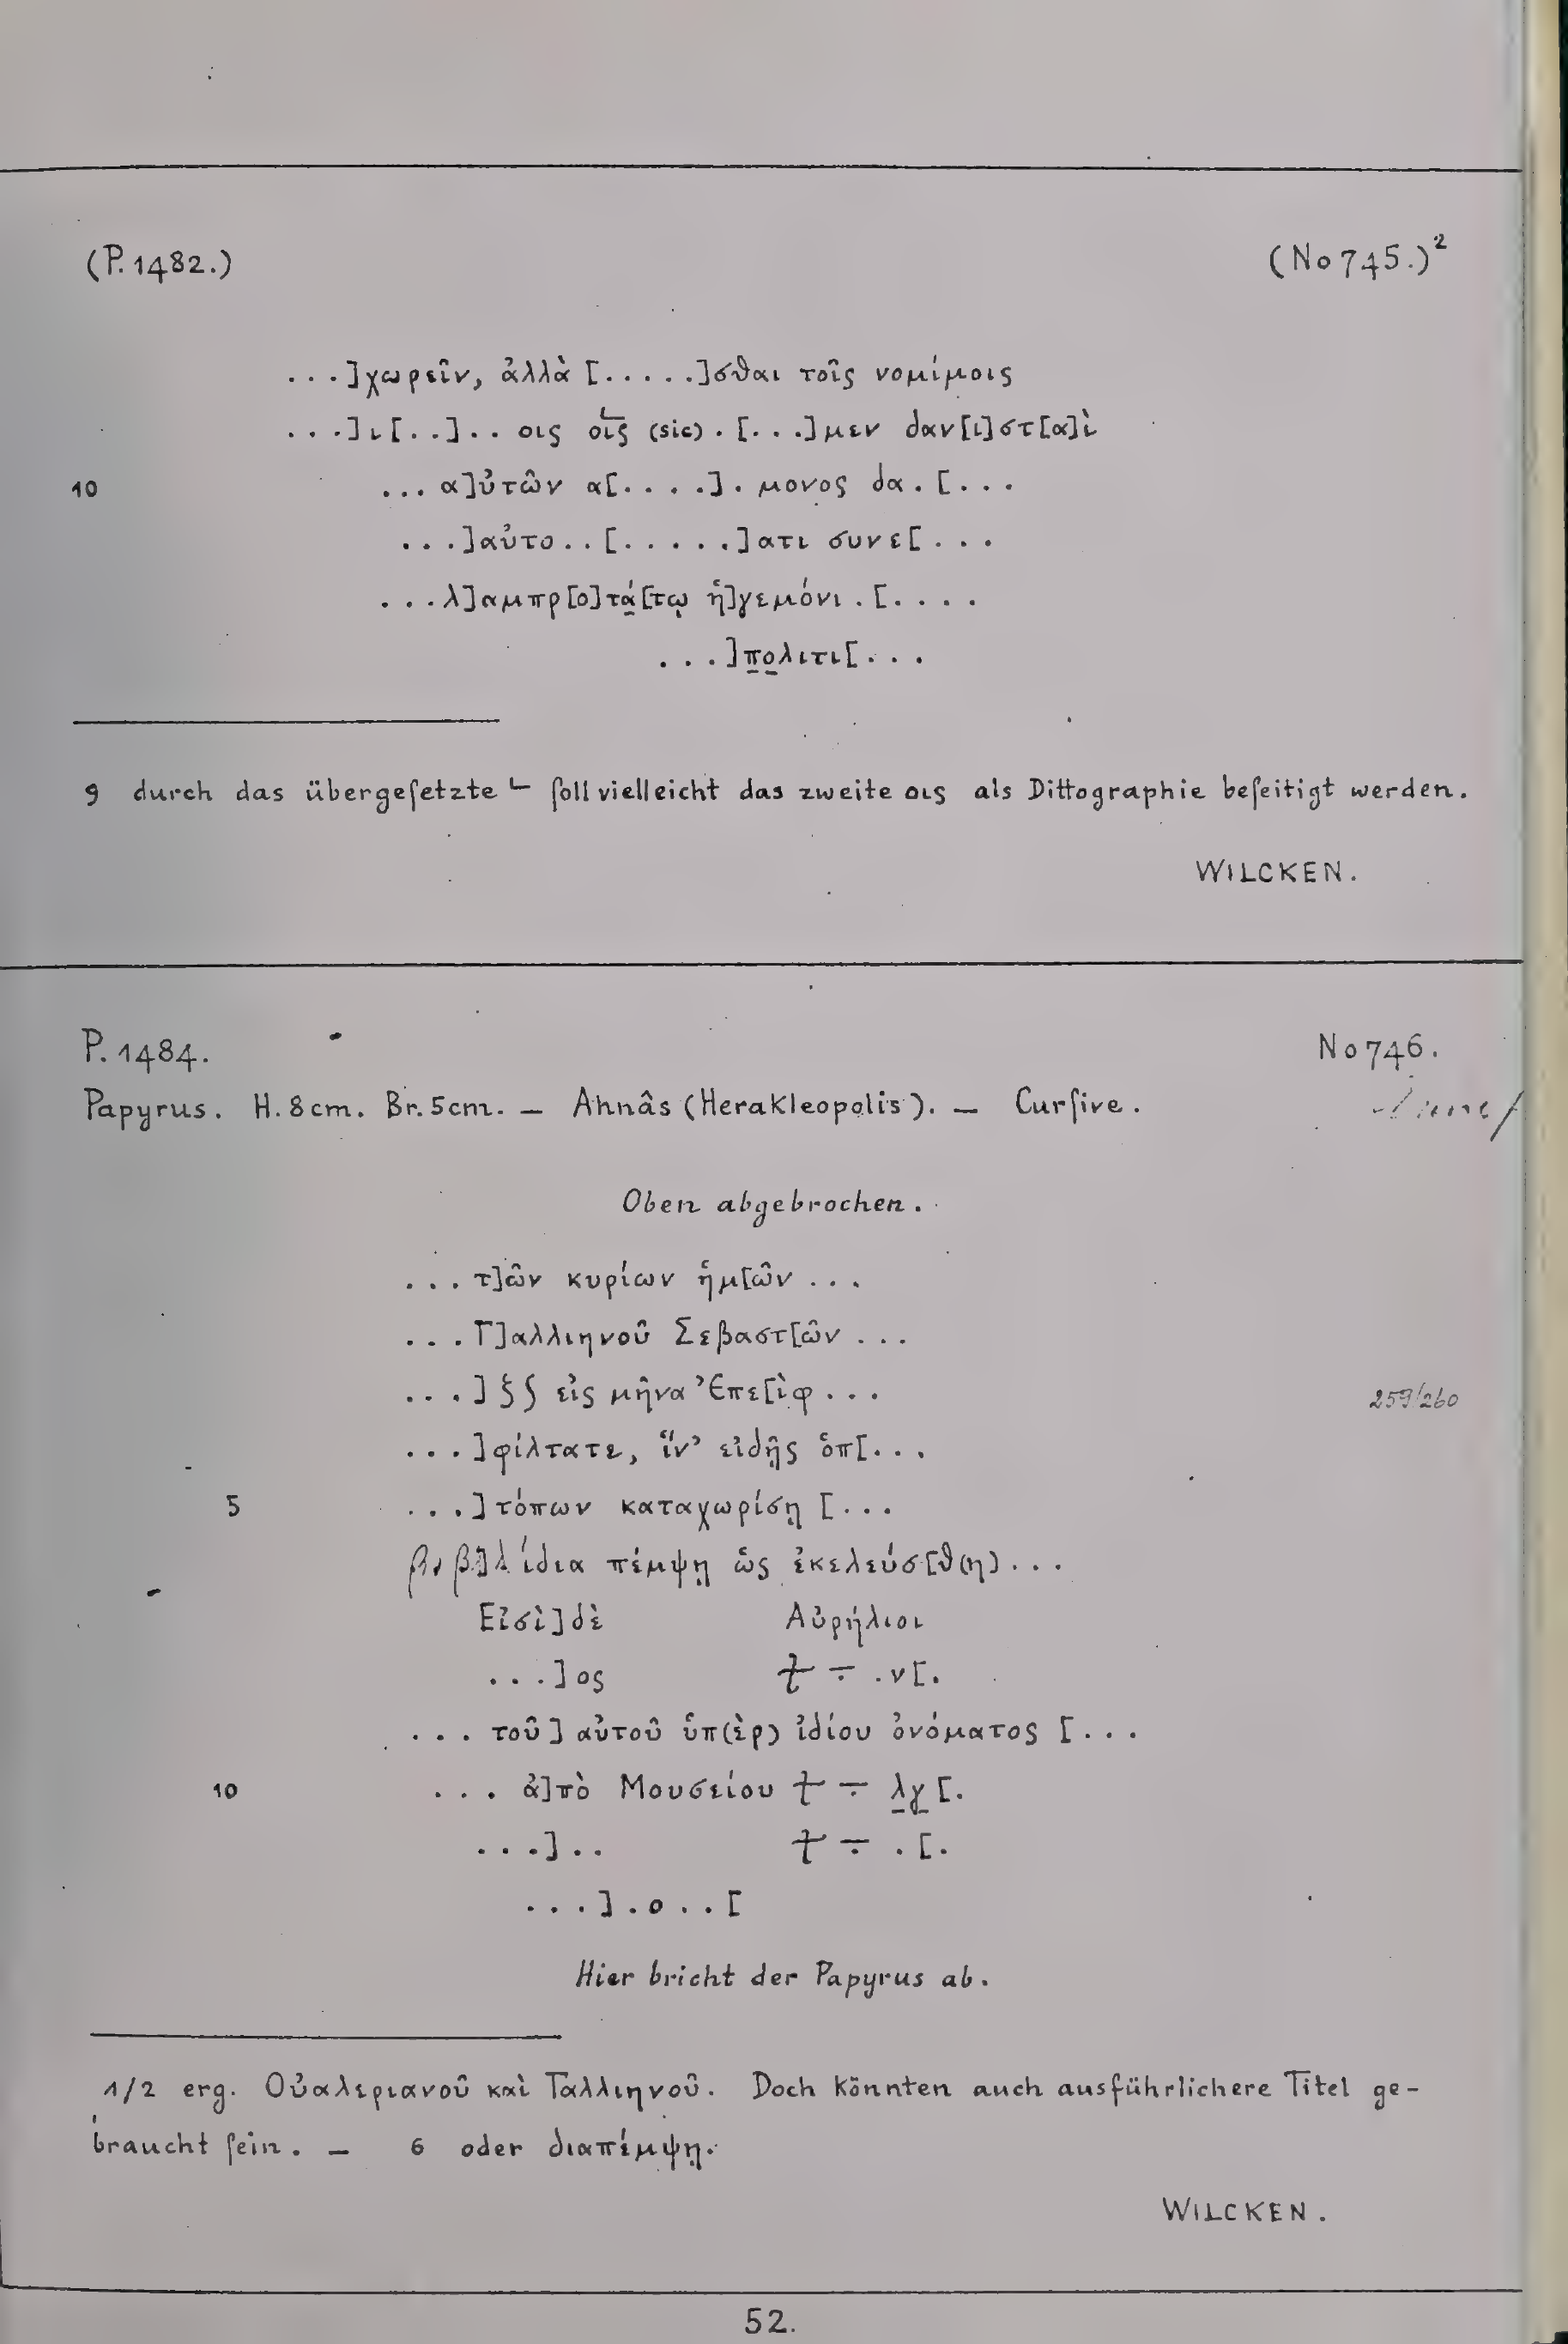 (P. 1482.) (No 745.)²
...]χωρεῖν, ἀλλὰ [.....]σθαι τοῖς νομίμοις
...]ι[..].. οις οἷς (sic) . [...]μεν δαν[ι]στ[α]ὶ
10 ... α]ὐτῶν α[....]. μονος δα. [...
...]αὐτο..[.....]ατι συνε[...
...λ]αμπρ[ο]τά[τῳ ἡ]γεμόνι . [....
...]πολιτι[...
9 durch das übergeſetzte ∟ ſoll vielleicht das zweite οις als Dittographie beſeitigt werden.
WILCKEN.
P. 1484. No 746.
Papyrus. H. 8cm. Br. 5cm. — Ahnâs (Herakleopolis). — Curſive.
Oben abgebrochen.
... τ]ῶν κυρίων ἡμ[ῶν ...
... Γ]αλλιηνοῦ Σεβαστ[ῶν ...
...] ξ∫ εἰς μῆνα Ἐπε[ὶφ ... 259/260
...]φίλτατε, ἵν' εἰδῇς ὁπ[...
5 ...]τόπων καταχωρίσῃ [...
βυβ]λίδια πέμψῃ ὡς ἐκελεύσ[θ(η) ...
Εἰσὶ]δὲ Αὐρήλιοι
...]ος 𐅵 ÷ .ν[.
... τοῦ] αὐτοῦ ὑπ(ὲρ) ἰδίου ὀνόματος [...
10 ... ἀ]πὸ Μουσείου 𐅵 ÷ λγ [.
...].. 𐅵 ÷ . [.
...].ο..[
Hier bricht der Papyrus ab.
1/2 erg. Οὐαλεριανοῦ καὶ Γαλλιηνοῦ. Doch könnten auch ausführlichere Titel ge-
braucht ſein. — 6 oder διαπέμψῃ.
WILCKEN.
52.